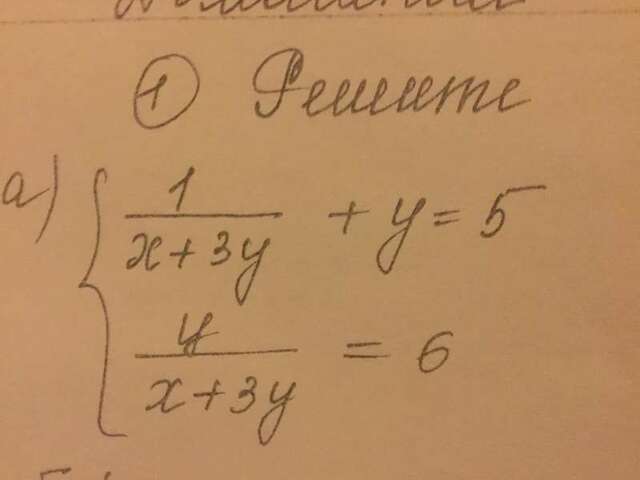 ① Решите
а) { 1/(x+3y) + y = 5
y/(x+3y) = 6